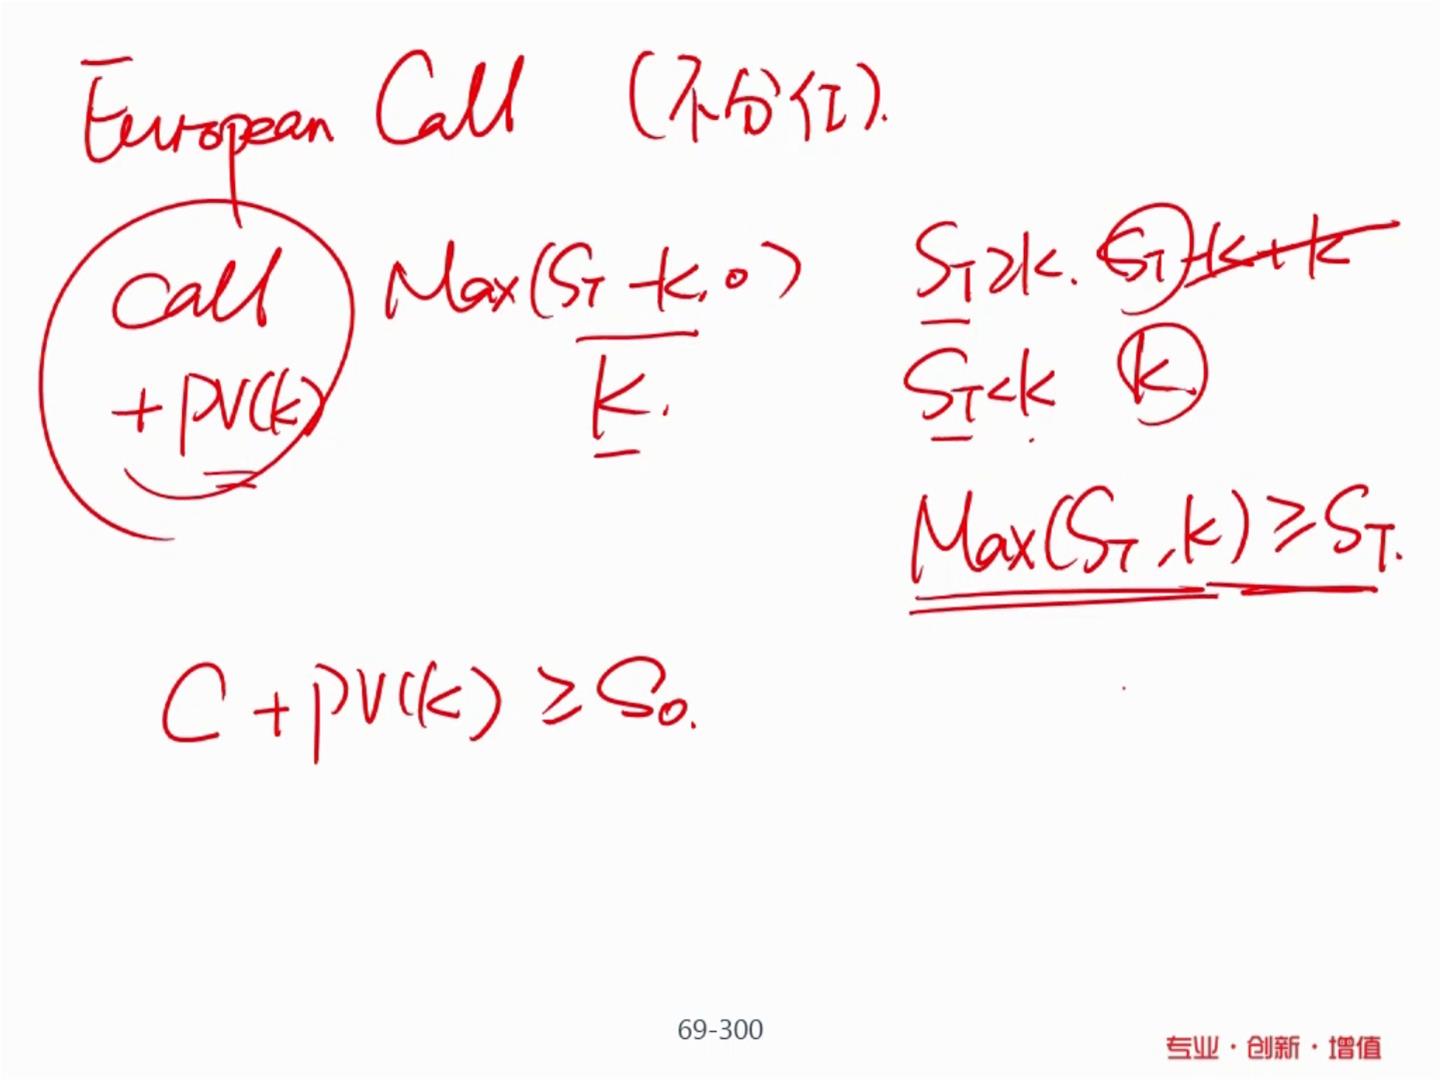 European Call (不分红).
Call Max(ST - k, 0) ST≥k. ST - k + k
+ PV(k) k. ST<k k
Max(ST, k) ≥ ST.
C + PV(k) ≥ S0.
69-300
专业·创新·增值